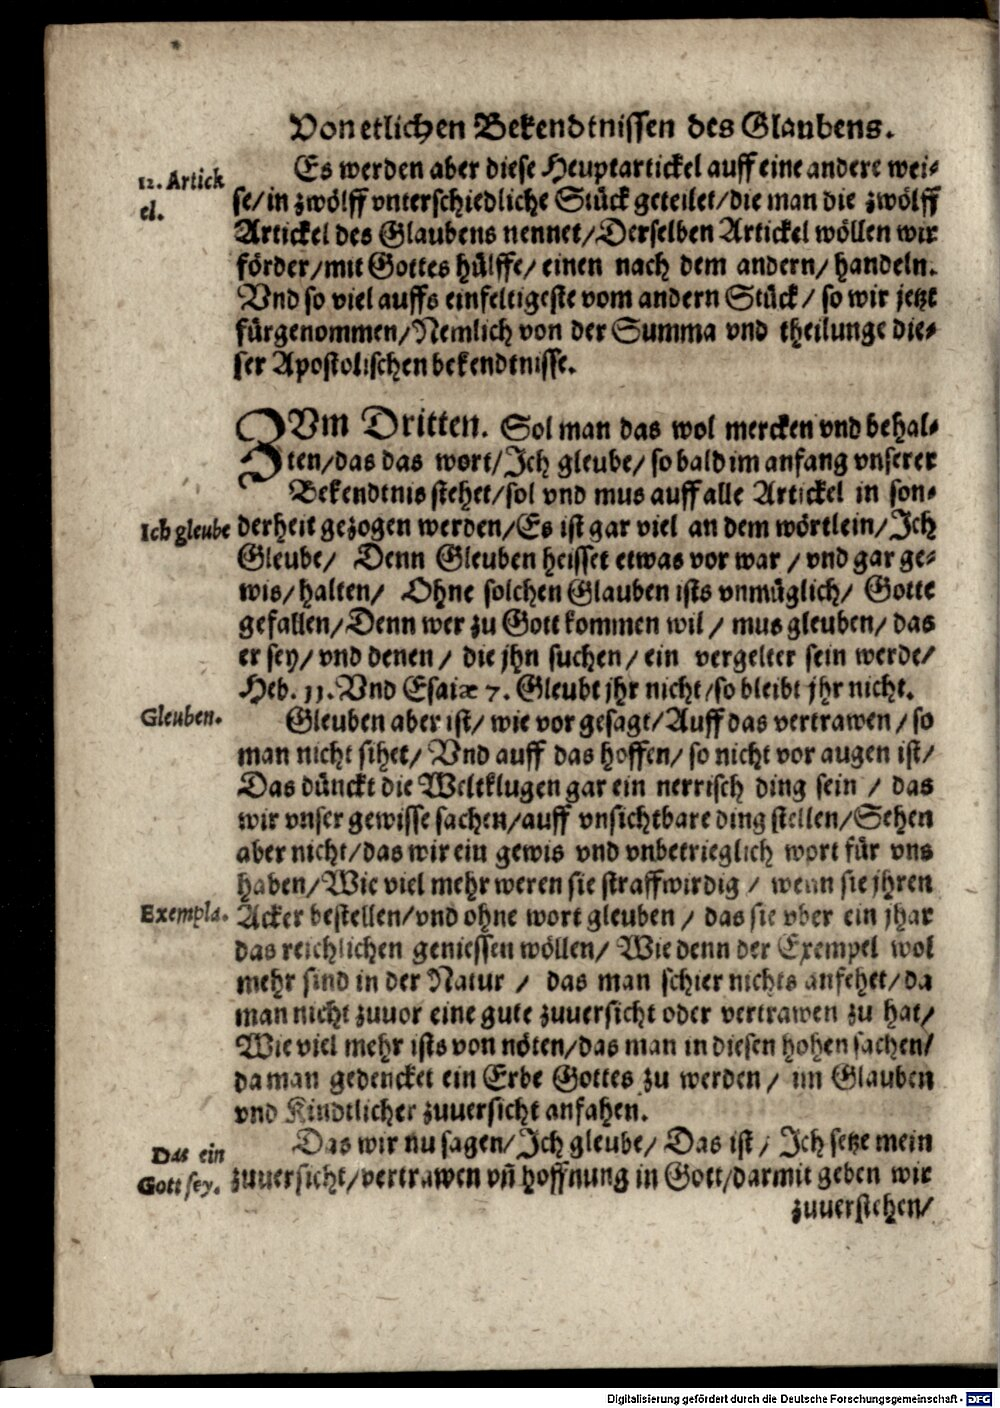 Von etlichen Bekendtnissen des Glaubens.
12. Artick
el.
Es werden aber diese Heuptartickel auff eine andere wei-
se/in zwölff vnterschiedliche Stück geteilet/die man die zwölff
Artickel des Glaubens nennet/Derselben Artickel wöllen wir
förder/mit Gottes hülffe/ einen nach dem andern/ handeln.
Vnd so viel auffs einfeltigeste vom andern Stück/ so wir jetzt
fürgenommen/Nemlich von der Summa vnd theilunge die-
ser Apostolischen bekendtnisse.
ZVm Dritten. Sol man das wol mercken vnd behal-
ten/das das wort/Ich gleube/ so bald im anfang vnserer
Bekendtnis stehet/sol vnd mus auff alle Artickel in son-
Ich gleube
derheit gezogen werden/Es ist gar viel an dem wörtlein/Ich
Gleube/ Denn Gleuben heisset etwas vor war / vnd gar ge-
wis/halten/ Ohne solchen Glauben ists vnmüglich/ Gotte
gefallen/Denn wer zu Gott kommen wil / mus gleuben/ das
er sey/ vnd denen / die jhn suchen/ ein vergelter sein werde/
Heb. 11. Vnd Esaiæ 7. Gleubt jhr nicht/so bleibt jhr nicht.
Gleuben.
Gleuben aber ist/ wie vor gesagt/Auff das vertrawen / so
man nicht sihet/ Vnd auff das hoffen/ so nicht vor augen ist/
Das dünckt die Weltklugen gar ein nerrisch ding sein / das
wir vnser gewisse sachen/auff vnsichtbare ding stellen/Sehen
aber nicht/das wir ein gewis vnd vnbetrieglich wort für vns
haben/Wie viel mehr weren sie straffwirdig / wenn sie jhren
Exempla.
Acker bestellen/vnd ohne wort gleuben / das sie vber ein jhar
das reichlichen geniessen wöllen/ Wie denn der Exempel wol
mehr sind in der Natur / das man schier nichts anfehet/da
man nicht zuuor eine gute zuuersicht oder vertrawen zu hat/
Wie viel mehr ists von nöten/das man in diesen hohen sachen/
da man gedencket ein Erbe Gottes zu werden/ im Glauben
vnd Kindtlicher zuuersicht anfahen.
Das ein
Gott sey.
Das wir nu sagen/Ich gleube/ Das ist / Ich setze mein
zuuersicht/vertrawen vñ hoffnung in Gott/darmit geben wir
zuuerstehen/
Digitalisierung gefördert durch die Deutsche Forschungsgemeinschaft - DFG